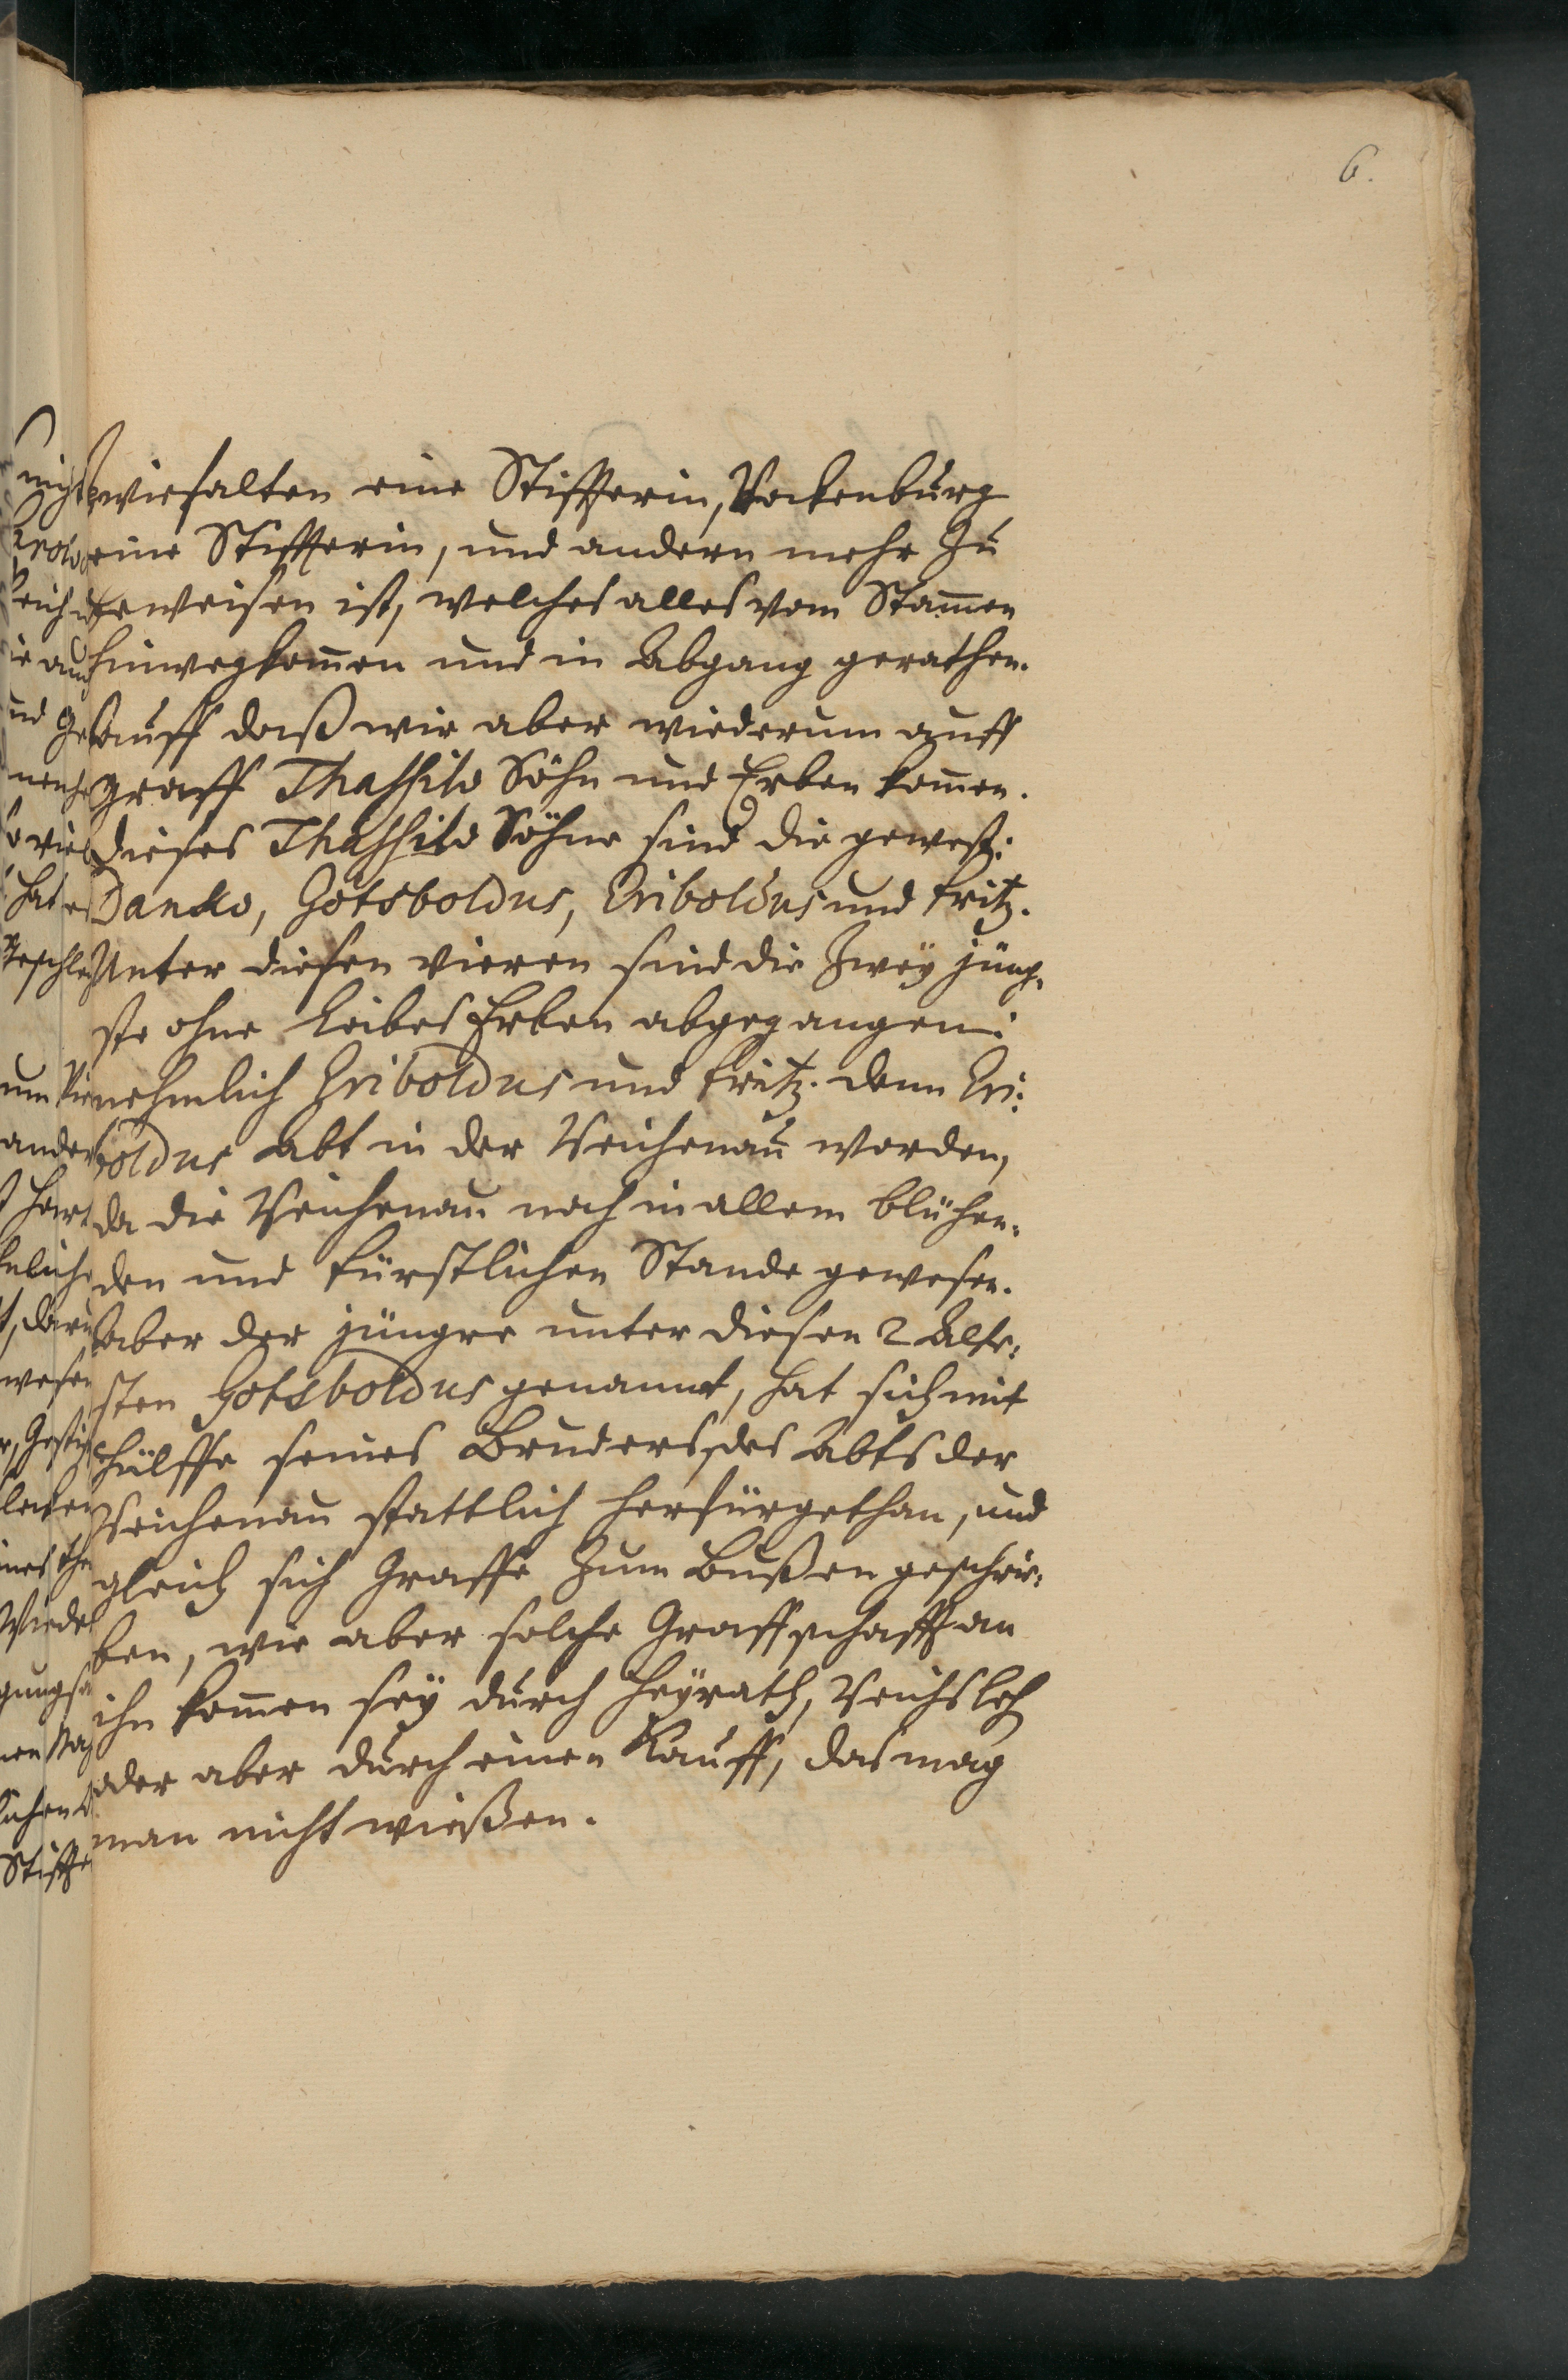 6.
Zwiefalten eine Stiffterin, Rockenburg
eine Stiffterin, und andern mehr zu
erweisen ist, welches alles vom Stam̅en
hinwegkom̅en und in Abgang gerathen.
Auff daß wir aber wiederum auff
Graff Thassilo Söhn und Erben kom̅en.
Dieses Thassilo Söhne sind die gewest:
Danko, Gotsboldus, Eriboldus und Fritz.
Unter diesen vieren sind die Zweÿ jüng-
ste ohne Leibes Erben abgegangen:
nehmlich Eriboldus und Fritz. denn Eri:
boldus Abt in der Reichenau worden,
da die Reichenau noch in allem blühen-
den und fürstlichen Stande gewesen.
Aber der jüngre unter diesen 2 Elte:
sten Gotsboldus genannt, hat sich mit
Hülffe seines Bruders, des Abts der
Reichenau stattlich herfürgethan, und
gleich sich Graffe zum Bußen geschrie:
ben, wie aber solche Graffschafft an
ihn kom̅en seÿ durch Heÿrath, Reichsleh
oder aber durch einen Kauff, das mag
man nicht wießen.